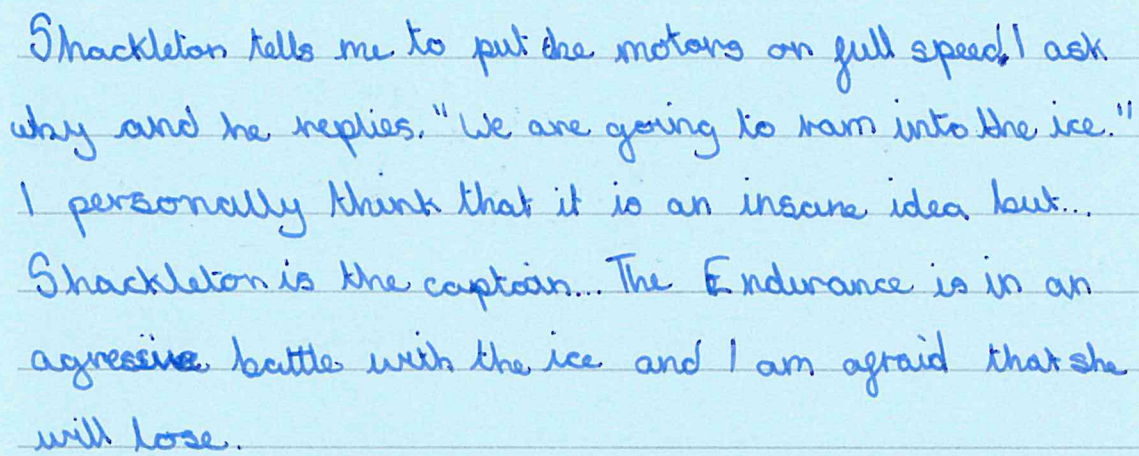 Shackleton tells me to put the motors on full speed. I ask
why and he replies. "We are going to ram into the ice."
I personally think that it is an insane idea but...
Shackleton is the captain... The Endurance is in an
agressive battle with the ice and I am afraid that she
will lose.